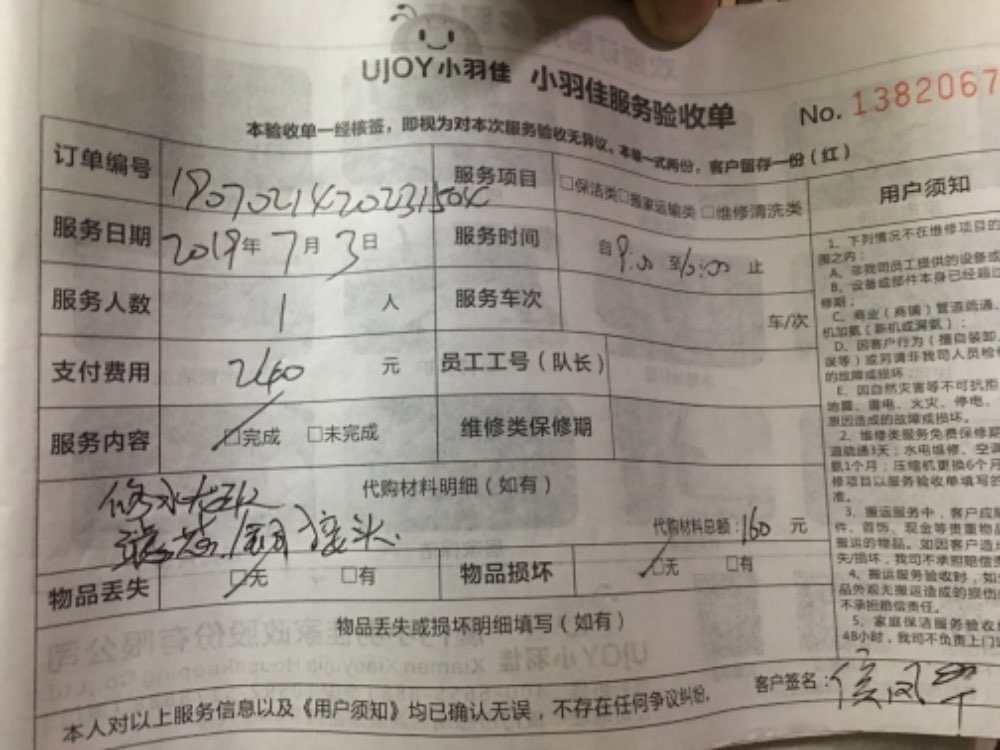 UJOY小羽佳 小羽佳服务验收单
No. 1382067
本验收单一经核签，即视为对本次服务验收无异议。本单一式两份，客户留存一份（红）
订单编号 服务项目 □保洁类□搬家运输类□维修清洗类
服务日期 2019年7月3日 服务时间 自 9:00 至 止
服务人数 1 人 服务车次 车/次
支付费用 240 元 员工工号（队长）
服务内容 □完成 □未完成 维修类保修期
代购材料明细（如有）
修水龙
接头. 代购材料总额：160 元
物品丢失 □无 □有 物品损坏 □无 □有
物品丢失或损坏明细填写（如有）
本人对以上服务信息以及《用户须知》均已确认无误，不存在任何争议纠纷.
客户签名：侯凤
用户须知
1、下列情况不在维修项目的
围之内：
A、非我司员工提供的设备或
B、设备或部件本身已经超过
修期；
C、商业（商铺）管道疏通、
机加氨（新机或漏氨）；
D、因客户行为（擅自装卸、
误等）或另请非我司人员检
的故障或损坏；
E、因自然灾害等不可抗拒
地震、雷电、火灾、停电、
原因造成的故障或损坏。
2、维修类服务免费保修期
道疏通3天；水电维修、空调
氨1个月；压缩机更换6个月
修项目以服务验收单填写的
准。
3、搬运服务中，客户应
件、首饰、现金等贵重物
搬运的物品。如因客户造
失/损坏，我司不承担赔偿责
4、搬运服务验收时，如
品外观无搬运造成的损伤
不承担赔偿责任。
5、家庭保洁服务验收
48小时，我司不负责上门